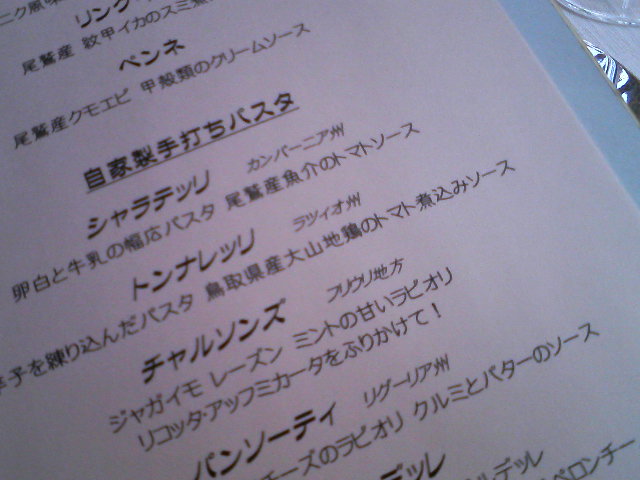 ニク風味
リング
尾鷲産 紋甲イカのスミ煮
ペンネ
尾鷲産クモエビ 甲殻類のクリームソース
自家製手打ちパスタ
シャラテッリ カンパーニア州
卵白と牛乳の幅広パスタ 尾鷲産魚介のトマトソース
トンナレッリ ラツィオ州
辛子を練り込んだパスタ 鳥取県産大山地鶏のトマト煮込みソース
チャルソンズ フリウリ地方
ジャガイモ レーズン ミントの甘いラビオリ
リコッタ・アッフミカータをふりかけて!
パンソーティ リグーリア州
チーズのラビオリ クルミとバターのソース
デッレ
ルデッレ
ペロンチー